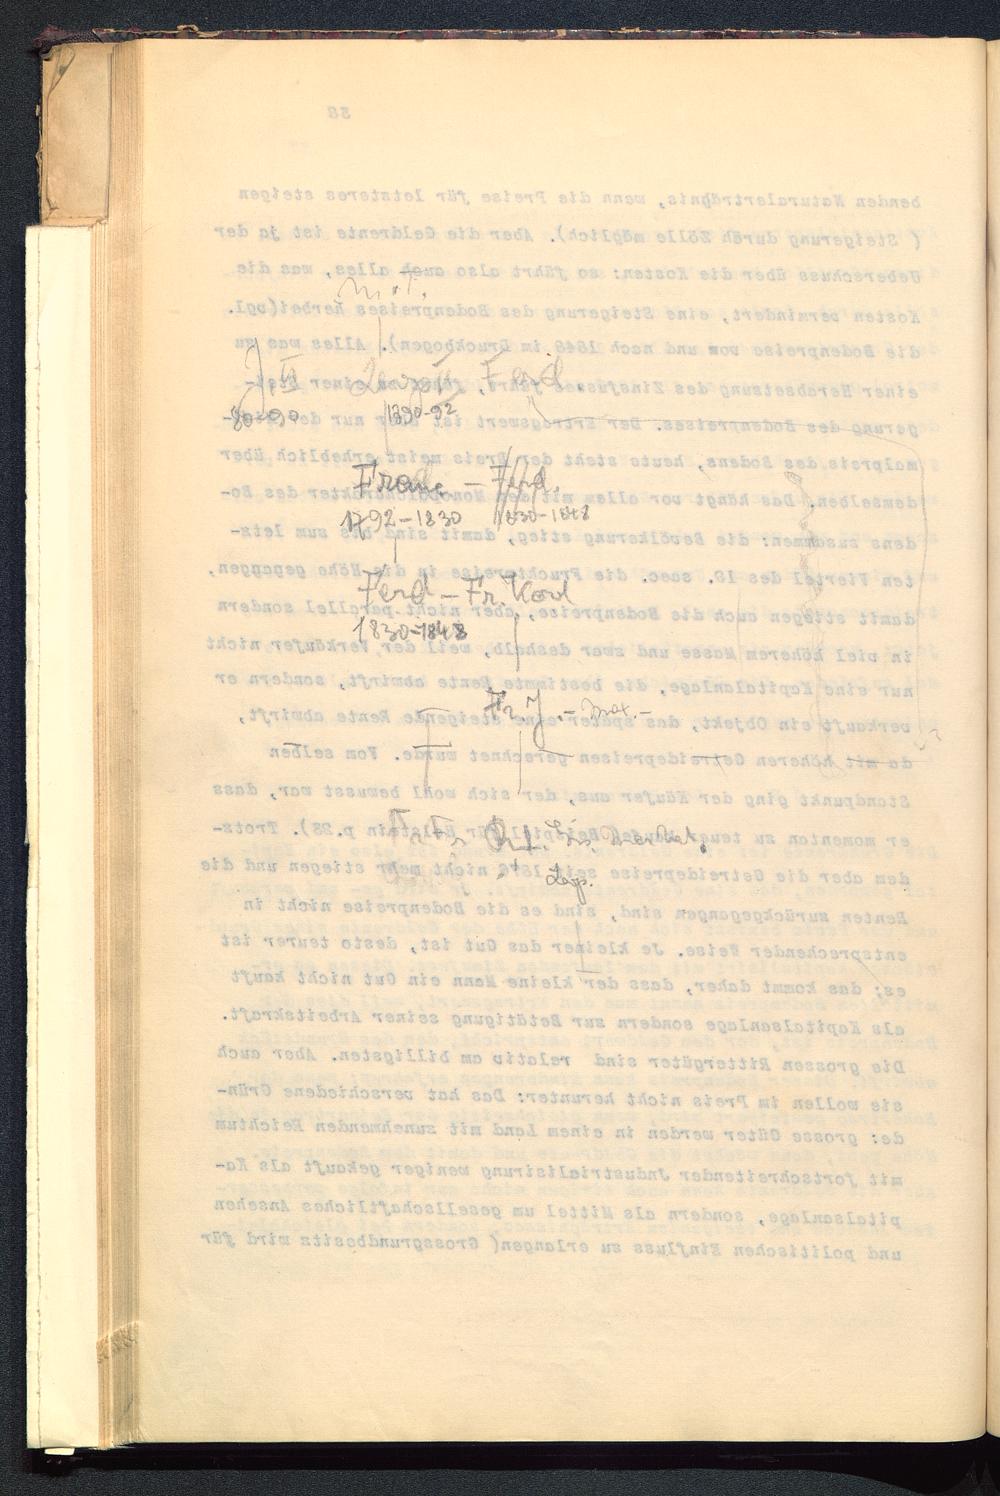 38
benden Naturalerträgnis, wenn die Preise für letzteres steigen
( Steigerung durch Zölle möglich). Aber die Geldrente ist ja der
Ueberschuss über die Kosten: so führt also auch alles, was die
Kosten vermindert, eine Steigerung des Bodenpreises herbei(vgl.
die Bodenpreise vom und nach 1848 im Druckbogen). Alles was zu
J. II Leopold Ferd.
einer Herabsetzung des Zinsfusses führt, zu einer Stei-
80-90 1790-92
gerung des Bodenpreises. Der Ertragswert ist nur der
malpreis des Bodens, heute steht der Preis meist erheblich über
Franz – Ferd.
demselben. Das hängt vor allem mit dem Monopolcharakter des Bo-
1792-1830 1830-1848
dens zusammen: die Bevölkerung stieg, damit sind bis zum letz-
ten Viertel des 19. saec. die Fruchtpreise in die Höhe gegangen,
Ferd – Fr. Karl
damit stiegen auch die Bodenpreise, aber nicht parallel sondern
1830-1848
in viel höherem Masse und zwar deshalb, weil der Verkäufer nicht
nur eine Kapitalanlage, die bestimmte Rente abwirft, sondern er
Fr. J. – Max. –
verkauft ein Objekt, das später eine steigende Rente abwirft,
da mit höheren Getreidepreisen gerechnet wurde. Vom selben
Standpunkt ging der Käufer aus, der sich wohl bewusst war, dass
er momenten zu teuer kaufe( Beispiel für Holstein p.28). Trotz-
dem aber die Getreidepreise seit nicht mehr stiegen und die
Renten zurückgegangen sind, sind es die Bodenpreise nicht in
entsprechender Weise. Je kleiner das Gut ist, desto teurer ist
es; das kommt daher, dass der kleine Mann ein Gut nicht kauft
als Kapitalsanlage sondern zur Betätigung seiner Arbeitskraft.
Die grossen Rittergüter sind relativ am billigsten. Aber auch
sie wollen im Preis nicht herunter: Das hat verschiedene Grün-
de: grosse Güter werden in einem Land mit zunehmenden Reichtum
mit fortschreitender Industrialisirung weniger gekauft als Ka-
pitalsanlage, sondern als Mittel um gesellschaftliches Ansehen
und politischen Einfluss zu erlangen( Grossgrundbesitz wird für